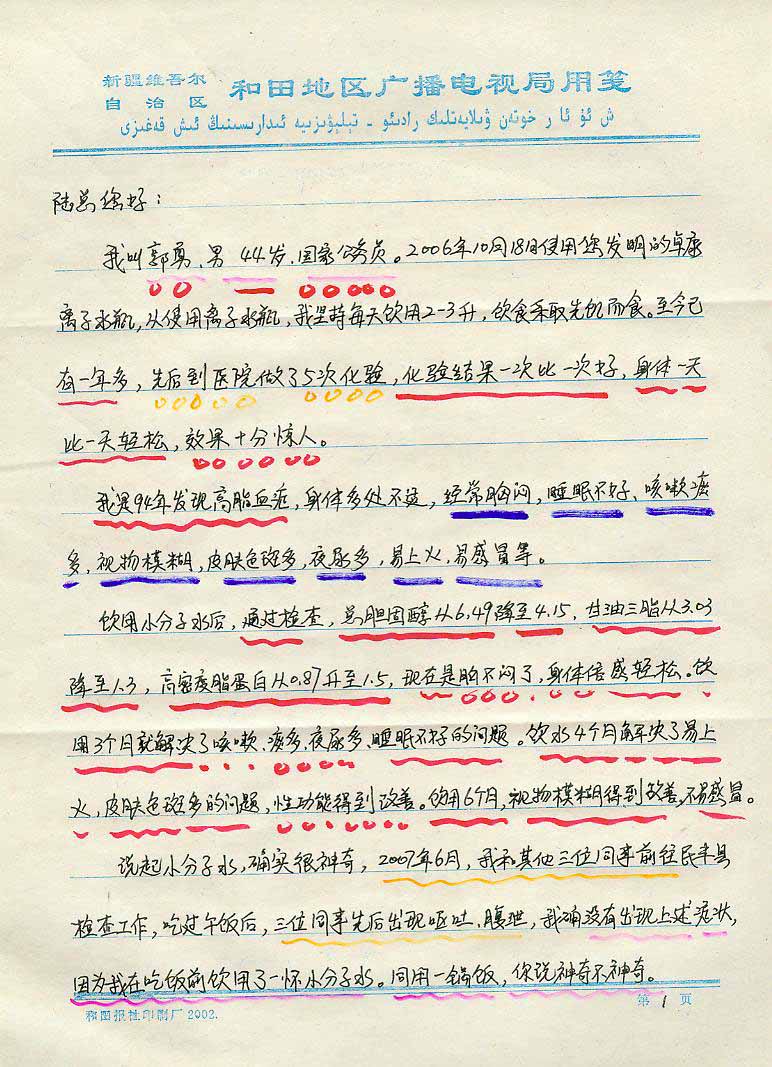 新疆维吾尔
自治区
和田地区广播电视局用笺
ش ئۇ ئا ر خوتەن ۋىلايەتلىك رادىئو - تېلېۋىزىيە ئىدارىسىنىڭ ئىش قەغىزى
陆总您好：
我叫郭勇、男 44岁、国家公务员。2006年10月18日使用您发明的卓康
离子水瓶，从使用离子水瓶，我坚持每天饮用2-3升，饮食采取先饥而食。至今已
有一年多，先后到医院做了5次化验，化验结果一次比一次好，身体一天
比一天轻松，效果十分惊人。
我是94年发现高脂血症，身体多处不适，经常胸闷，睡眠不好、咳嗽痰
多，视物模糊，皮肤色斑多，夜尿多，易上火，易感冒等。
饮用小分子水后，通过检查，总胆固醇从6.49降至4.15，甘油三脂从3.03
降至1.3，高密度脂蛋白从0.87升至1.5，现在是胸不闷了，身体倍感轻松。饮
用3个月就解决了咳嗽、痰多、夜尿多、睡眠不好的问题。饮水4个月解决了易上
火，皮肤色斑多的问题，性功能得到改善。饮用6个月，视物模糊得到改善，不易感冒。
说起小分子水，确实很神奇，2007年6月，我和其他三位同事前往民丰县
检查工作，吃过午饭后，三位同事先后出现呕吐、腹泄，我确没有出现上述症状，
因为我在吃饭前饮用了一怀小分子水。同用一锅饭，你说神奇不神奇。
第 1 页
和田报社印刷厂 2002.